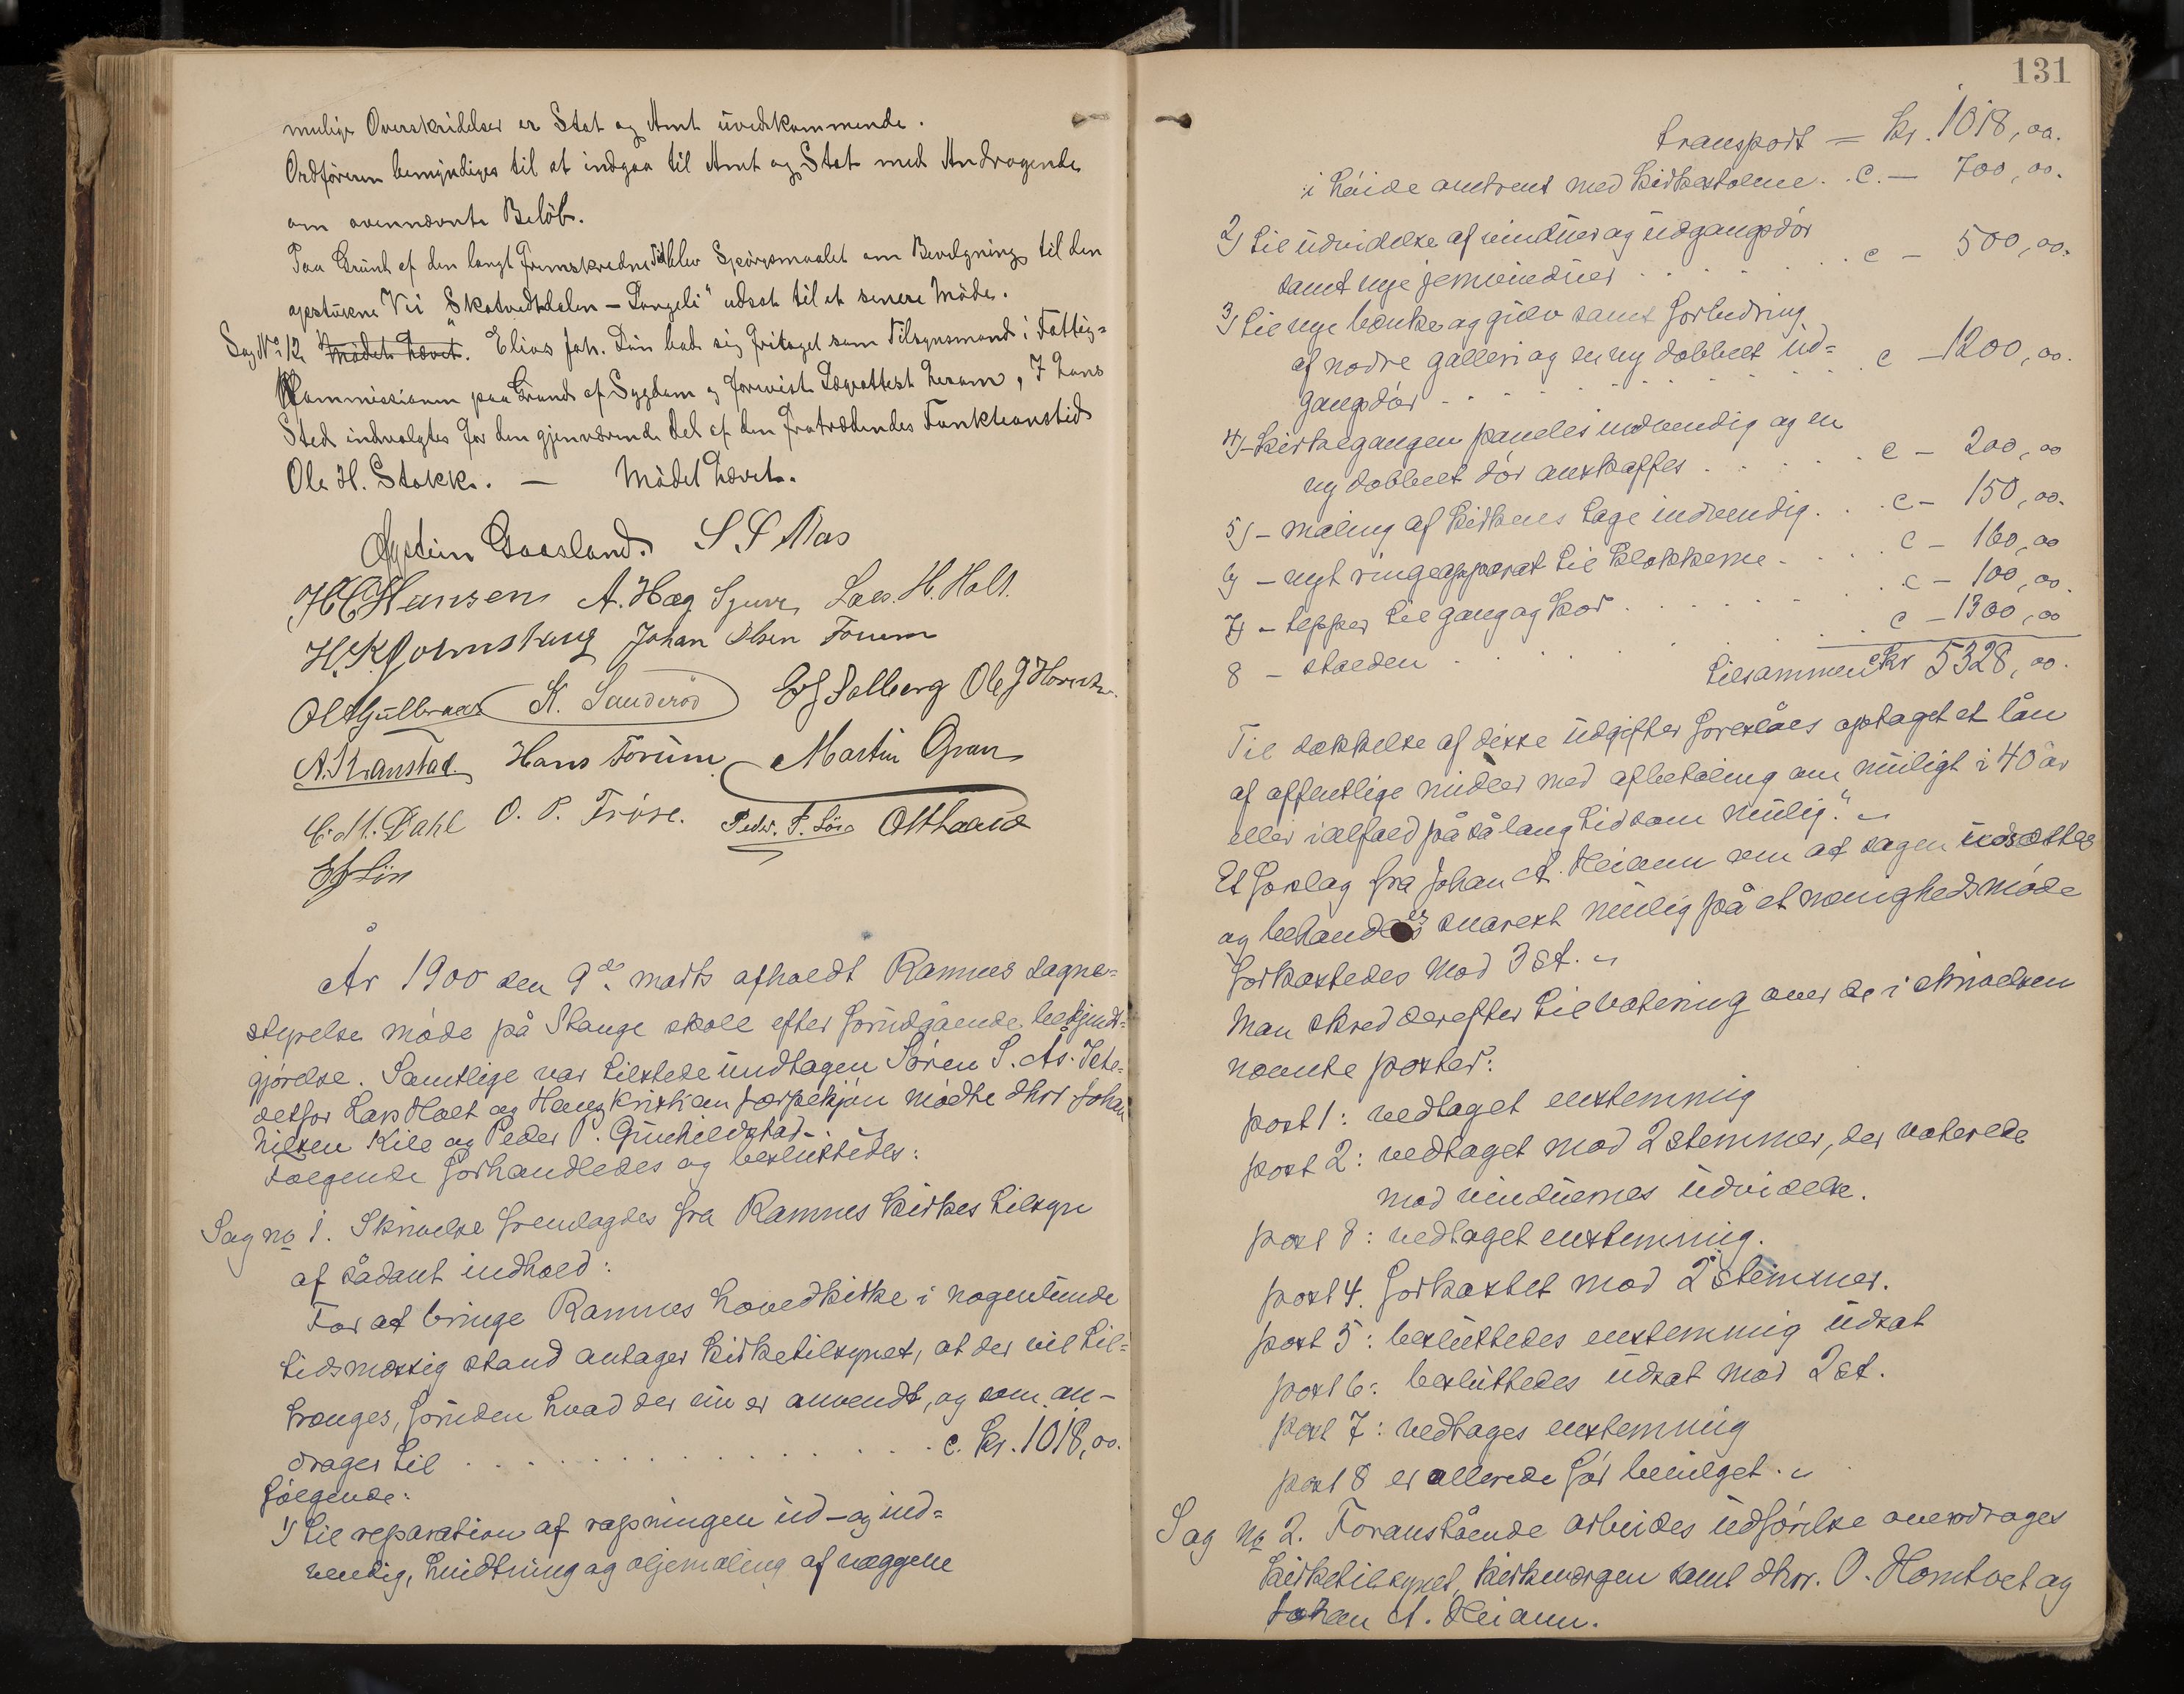 mulige Overskridelser er Stat og Amt uvedkommende.
Ordføreren bemyndiges til at indgaa til Amt og Stat med Andragende
om ovennævnte Beløb.
Paa Grund af den langt fremskredne Tid blev Spørgsmaalet om Bevilgning til den
opstukne Vei "Skatvedtdalen – Langeli" udsat til et senere Møde.
Sag No 12 Mødet hævet. Elias Joh. Lin bad sig fritaget som Tilsynsmand i Fattig=
kommissionen paa Grund af Sygdom og forevist Lægattest herom, I hans
Sted indvalgtes for den gjenværende Del af den fratrædendes Funktionstid
Ole H. Stokke. — Mødet hævet.
Øystein Gaasland. S S Aas
H C Hansen A. Hæg Lars H. Holt.
H. K. Johan Olsen Forum
Ol A Gulbrans K. Sanderød Solberg Ole J
A. Kranstad Hans Forum Martin Gran
C. M. Dahl O. P. Trøse. Peder. F. Lin
E J Lin
År 1900 den 9de marts afholdt Ramnes sogne=
styrelse møde på Stange skole efter forudgående bekjendt=
gjørelse. Samtlige var tilstede undtagen Søren S. Ås. Iste=
detfor Lars Holt og Hans Kristian møtte dhrr Johan
Nilsen Kile og Peder P. Gunhildstad.
Følgende forhandledes og besluttedes:
Sag no 1. Skrivelse fremlagdes fra Ramnes kirkes tilsyn
af sådant indhold:
For at bringe Ramnes hovedkirke i nogenlunde
tidsmæssig stand antager kirketilsynet, at der vil til=
trænges, foruden hvad der nu er anvendt, og som an–
drager til . . . . . . . . . . c. kr. 1018,00.
følgende:
1) til reparation af rapningen ud– og ind=
vendig, hvidtning og oljemaling af væggene
131
transport = kr. 1018,00.
i høide omtrent med kirkestolene. . c. — 700,00.
2) til udvidelse af vinduer og udgangsdør
samt nye jernvinduer . . . . . c — 500,00.
3) til nye bænker og gulv samt forbedring
af nedre galleri og en ny dobbelt ud=
gangsdør . . . . . . c — 1200,00.
4) – kirkegangen paneles indvendig og en
ny dobbelt dør anskaffes . . . . . c — 200,00
5) – maling af kirkens tage indvendig. . . c — 150,00.
6) – nyt ringeapparat til klokkerne . . . . c — 160,00
7) – tepper til gang og kor . . . . . . c — 100,00.
8 – stolden . . . . . . . . c — 1300,00
tilsammen c kr 5328,00.
Til dækkelse af disse udgifter foreslåes optaget et lån
af offentlige midler med afbetaling om muligt i 40 år
eller ialfald på så lang tid som mulig."
Et forslag fra Johan A. Heiann om at sagen udsættes
og behandles snarest mulig på et menighedsmøde
forkastedes mod 3 st.
Man skred derefter til votering over de i skrivelsen
nævnte poster:
post 1: vedtaget enstemmig
post 2: vedtaget mod 2 stemmer, der voterede
mod vinduernes udvidelse.
post 3: vedtaget enstemmig.
post 4. forkastet mod 2 stemmer.
post 5: besluttedes enstemmig udsat
post 6: besluttedes udsat mod 2 st.
post 7: vedtages enstemmig
post 8 er allerede før bevilget.
Sag no 2. Foranstående arbeides udførelse overdrages
kirketilsynet, kirkeværgen samt dhrr. O. Horntvet og
Johan A. Heiann.